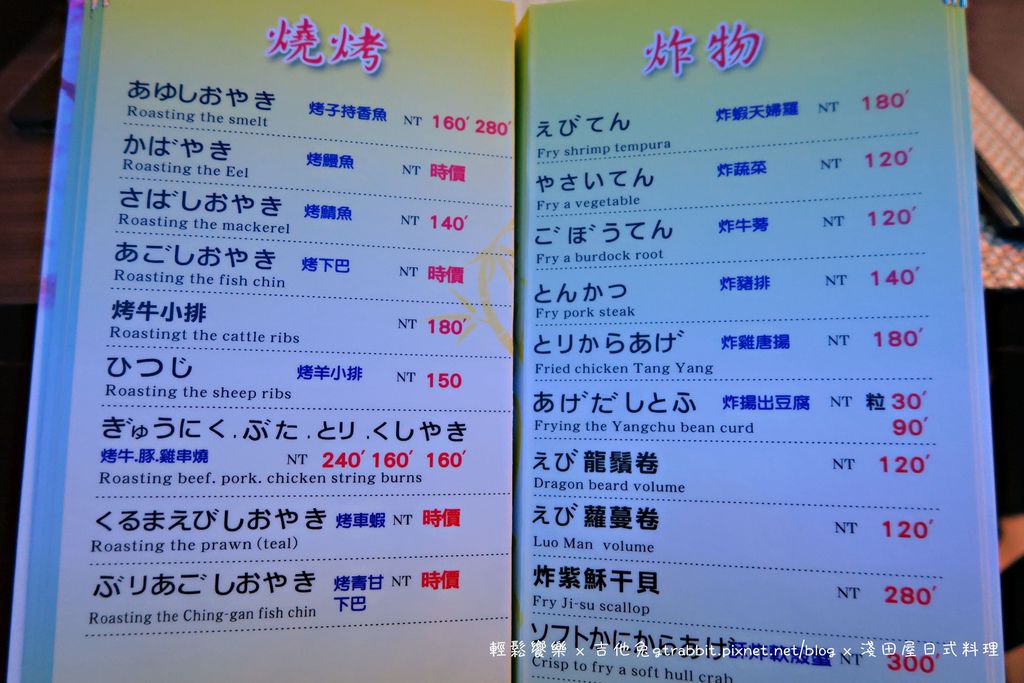 燒烤
あゆしおやき 烤子持香魚 NT 160' 280'
Roasting the smelt
かばやき 烤鰻魚 NT 時價
Roasting the Eel
さばしおやき 烤鯖魚 NT 140'
Roasting the mackerel
あごしおやき 烤下巴 NT 時價
Roasting the fish chin
烤牛小排 NT 180'
Roastingt the cattle ribs
ひつじ 烤羊小排 NT 150
Roasting the sheep ribs
ぎゅうにく.ぶた.とり.くしやき
烤牛.豚.雞串燒 NT 240' 160' 160'
Roasting beef. pork. chicken string burns
くるまえびしおやき 烤車蝦 NT 時價
Roasting the prawn (teal)
ぶりあごしおやき 烤青甘下巴 NT 時價
Roasting the Ching-gan fish chin
炸物
えびてん 炸蝦天婦羅 NT 180'
Fry shrimp tempura
やさいてん 炸蔬菜 NT 120'
Fry a vegetable
ごぼうてん 炸牛蒡 NT 120'
Fry a burdock root
とんかつ 炸豬排 NT 140'
Fry pork steak
とりからあげ 炸雞唐揚 NT 180'
Fried chicken Tang Yang
あげだしとふ 炸揚出豆腐 NT 粒 30'
Frying the Yangchu bean curd 90'
えび龍鬚卷 NT 120'
Dragon beard volume
えび蘿蔓卷 NT 120'
Luo Man volume
炸紫穌干貝 NT 280'
Fry Ji-su scallop
ソフトかにからあげ NT 300'
Crisp to fry a soft hull crab
輕鬆饗樂 x 吉他兔gtrabbit.pixnet.net/blog x 淺田屋日式料理